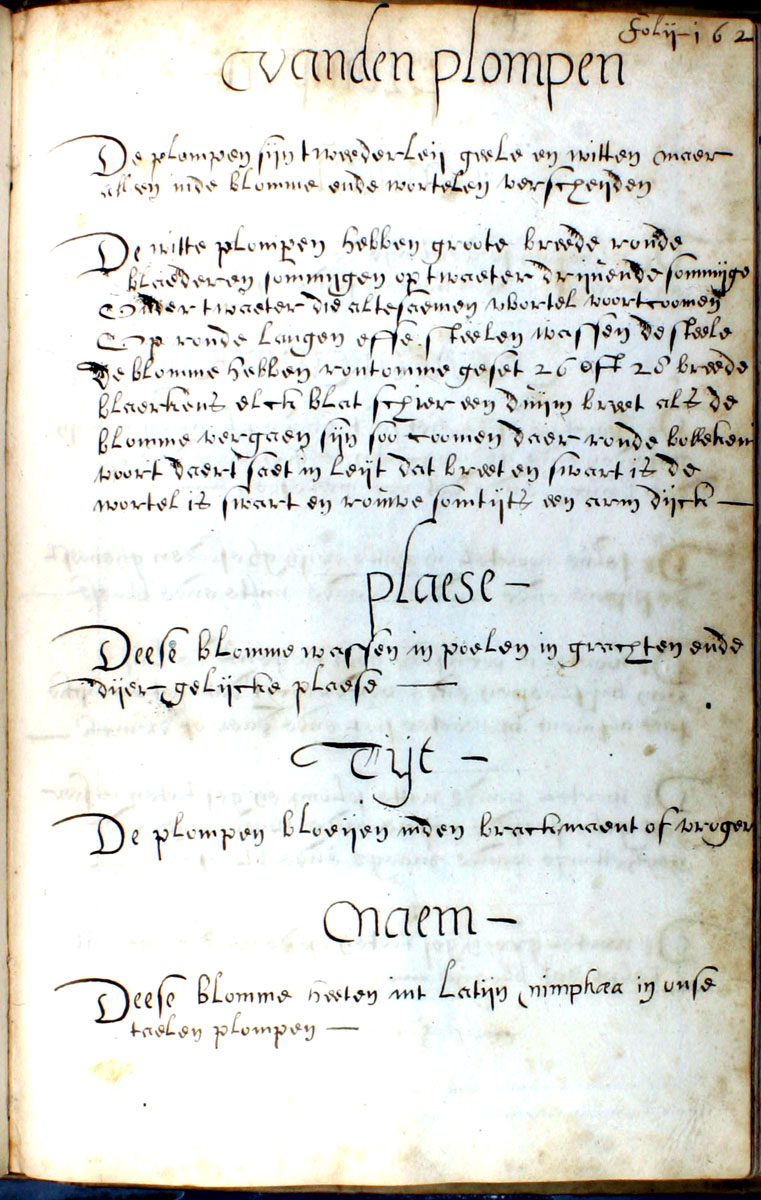 folij 162
vanden plompen
De plompen sijn tweederleij geele en witten maer
alleen inde blomme ende wortelen verscheijden
De witte plompen hebben groote breede ronde
blaederen sommijgen op twaeter drijuende sommijge
Onder twaeter die altesaemen wortel voortcoomen
Op ronde langen effe steelen wassen de steele
de blomme hebben rontomme geset 26 oft 28 breede
blaerkens elck blat schier een duijm breet als de
blomme vergaen sijn soo coomen daer ronde bolleken
voort daert saet in leijt dat breet en swart is de
wortel is swart en rouwe somtijts een arm dijck —
plaese —
Deese blomme wassen in poelen in grachten ende
dijergelijcke plaese —
Tijt —
De plompen bloeijen inden brackmaent of vroger
Naem —
Deese blomme heeten int Latijn nimphæa in onse
taelen plompen —